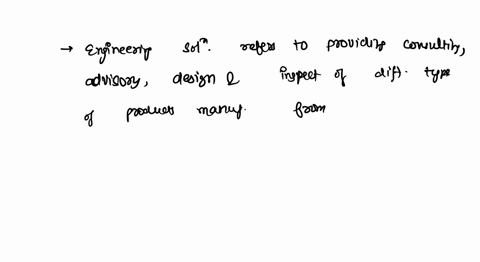 → Engineering solⁿ. refers to providing consulting,
advisory, design & inspect of diff. type
of products manuf. from